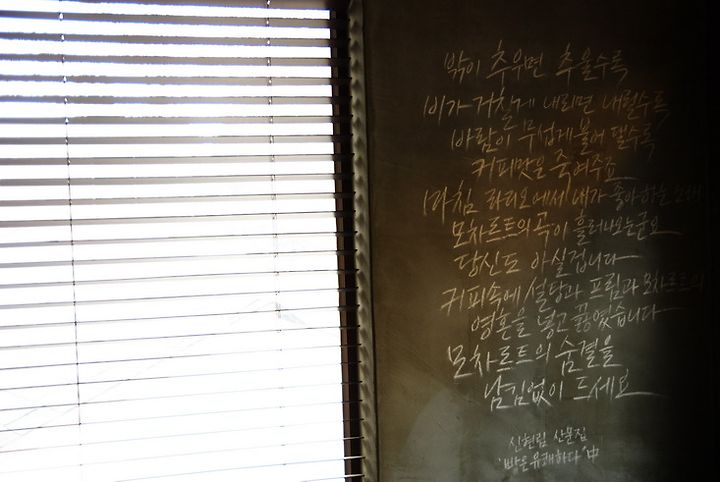 밖이 추우면 추울수록
비가 거칠게 내리면 내릴수록
바람이 무섭게 불어 댈수록
커피맛은 죽여주죠
마침 라디오에서 내가 좋아하는
모차르트의 곡이 흘러나오는군요
당신도 아실겁니다
커피속에 설탕과 프림과 모차르트의
영혼을 넣고 끓였습니다
모차르트의 숨결을
남김없이 드세요
신현림 산문집
"빵은유쾌하다"中